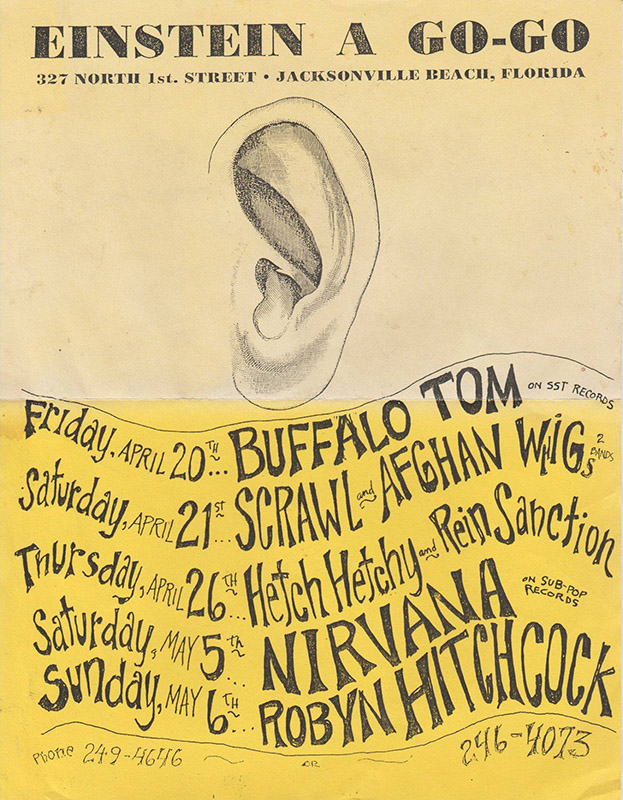 EINSTEIN A GO-GO
327 NORTH 1st. STREET • JACKSONVILLE BEACH, FLORIDA
Friday, APRIL 20TH... BUFFALO TOM ON SST RECORDS
Saturday, APRIL 21st... SCRAWL and AFGHAN WHIGS 2 BANDS
Thursday, APRIL 26TH... Hetch Hetchy and Rein Sanction
Saturday, MAY 5th... NIRVANA ON SUB-POP RECORDS
Sunday, MAY 6TH... ROBYN HITCHCOCK
Phone 249-4646 OR 246-4073